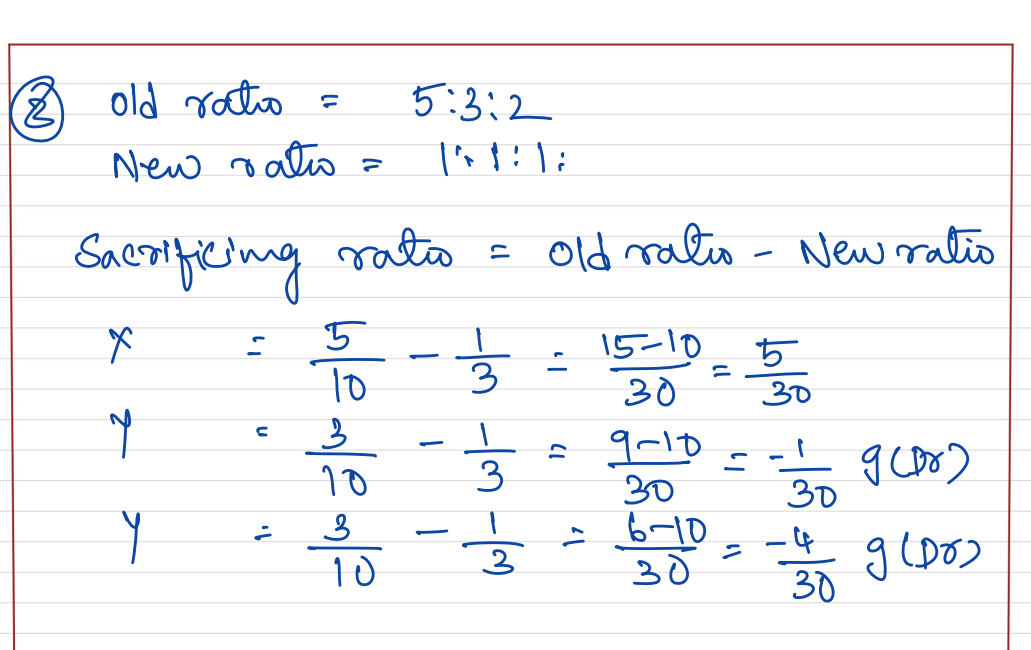 ② Old ratio = 5:3:2
New ratio = 1:1:1:
Sacrificing ratio = Old ratio - New ratio
X = 5/10 - 1/3 = 15-10/30 = 5/30
Y = 3/10 - 1/3 = 9-10/30 = -1/30 g(Dr)
Y = 3/10 - 1/3 = 6-10/30 = -4/30 g(Dr)